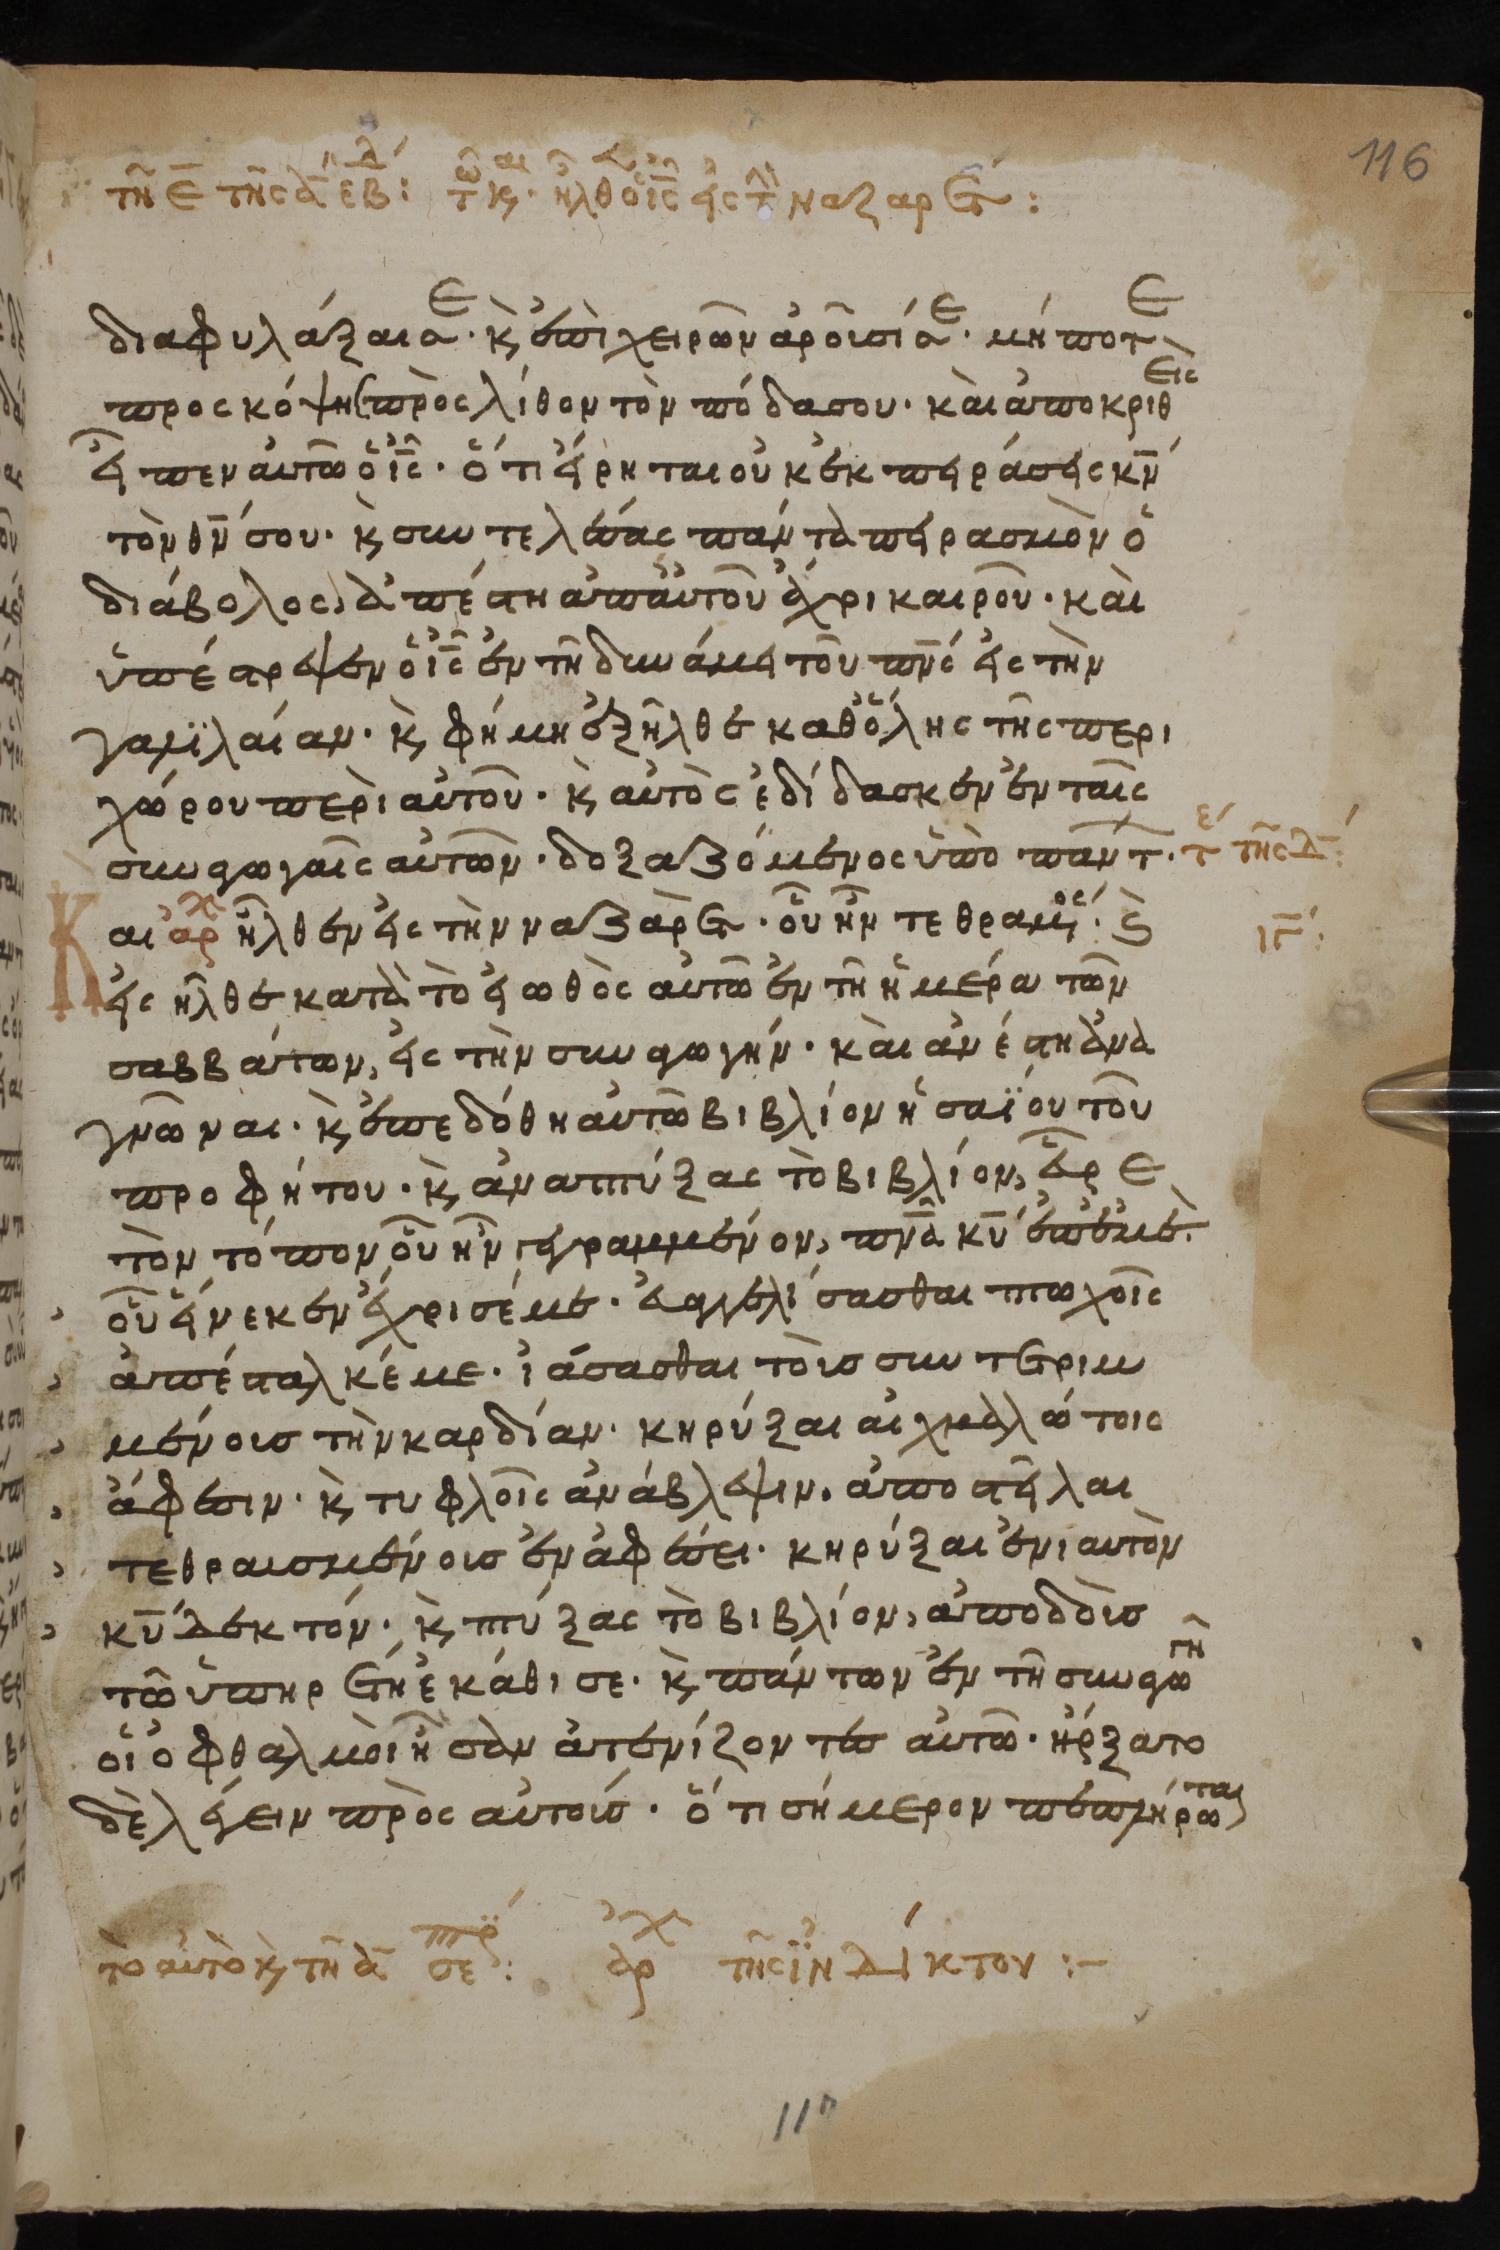 116
τῆ ε̅ τῆς α̅ εβδ: τῶ κ, αι. ἦλθ ὁ ις̅ εἰς τὴν ναζαρετ:
διαφυλάξαι σε. κ, ἐπὶ χειρῶν ἀροῦσί σε. μήποτε
προσκόψης πρὸς λίθον τὸν πόδα σου. καὶ ἀποκριθεὶς
εἶπεν αὐτῶ ὁ ις̅. ὅτι εἴρηται οὐκ ἐκπειράσεις κν̅
τὸν θν̅ σου. κ, συντελέσας πάντα πειρασμὸν ὁ
διάβολος, ἀπέστη ἀπ αὐτοῦ ἄχρι καιροῦ. καὶ
ὑπέστρεψεν ὁ ις̅ ἐν τῆ δυνάμει τοῦ πνς̅ εἰς τὴν
γαλιλαίαν. κ, φήμη ἐξῆλθε καθ ὅλης τῆς περι
χώρου περὶ αὐτοῦ. κ, αὐτὸς ἐδίδασκεν ἐν ταῖς
συναγωγαῖς αὐτῶν. δοξαζόμενος ὑπὸ πάντων. τε τῆς δ:
Και αρχ ἦλθεν εἰς τὴν ναζαρὲτ. οὗ ἦν τεθραμμένος. κ, ιγ̅:
εἰσῆλθε κατὰ τὸ εἰωθὸς αὐτῶ ἐν τῆ ἡμέρα τῶν
σαββάτων, εἰς τὴν συναγωγήν. καὶ ἀνέστη ἀνα
γνῶναι. κ, ἐπεδόθη αὐτῶ βιβλίον ἡσαΐου τοῦ
προφήτου. κ, ἀναπτύξας τὸ βιβλίον, εὗρε
τὸν τόπον οὗ ἦν γεγραμμένον, πνα̅ κυ̅ ἐπ ἐμέ.
οὗ εἵνεκεν ἔχρισέ με. εὐαγγελίσασθαι πτωχοῖς
ἀπέσταλκέ με. ἰάσασθαι τοὺς συντετριμ
μένους τὴν καρδίαν. κηρύξαι αἰχμαλώτοις
ἄφεσιν. κ, τυφλοῖς ἀνάβλεψιν. ἀποστεῖλαι
τεθραυσμένους ἐν ἀφέσει. κηρύξαι ἐνιαυτὸν
κυ̅ δεκτόν. κ, πτύξας τὸ βιβλίον, ἀποδδοὺς
τῶ ὑπηρέτη ἐκάθισε. κ, πάντων ἐν τῆ συναγωγῆ
οἱ ὀφθαλμοὶ ἦσαν ἀτενίζοντες αὐτῶ. ἤρξατο
δὲ λέγειν πρὸς αὐτούς. ὅτι σήμερον πεπλήρωται
τὸ αὐτὸ κ, τῆ α̅ σεπτρ: ἀρχ τῆς ἰνδίκτου :-